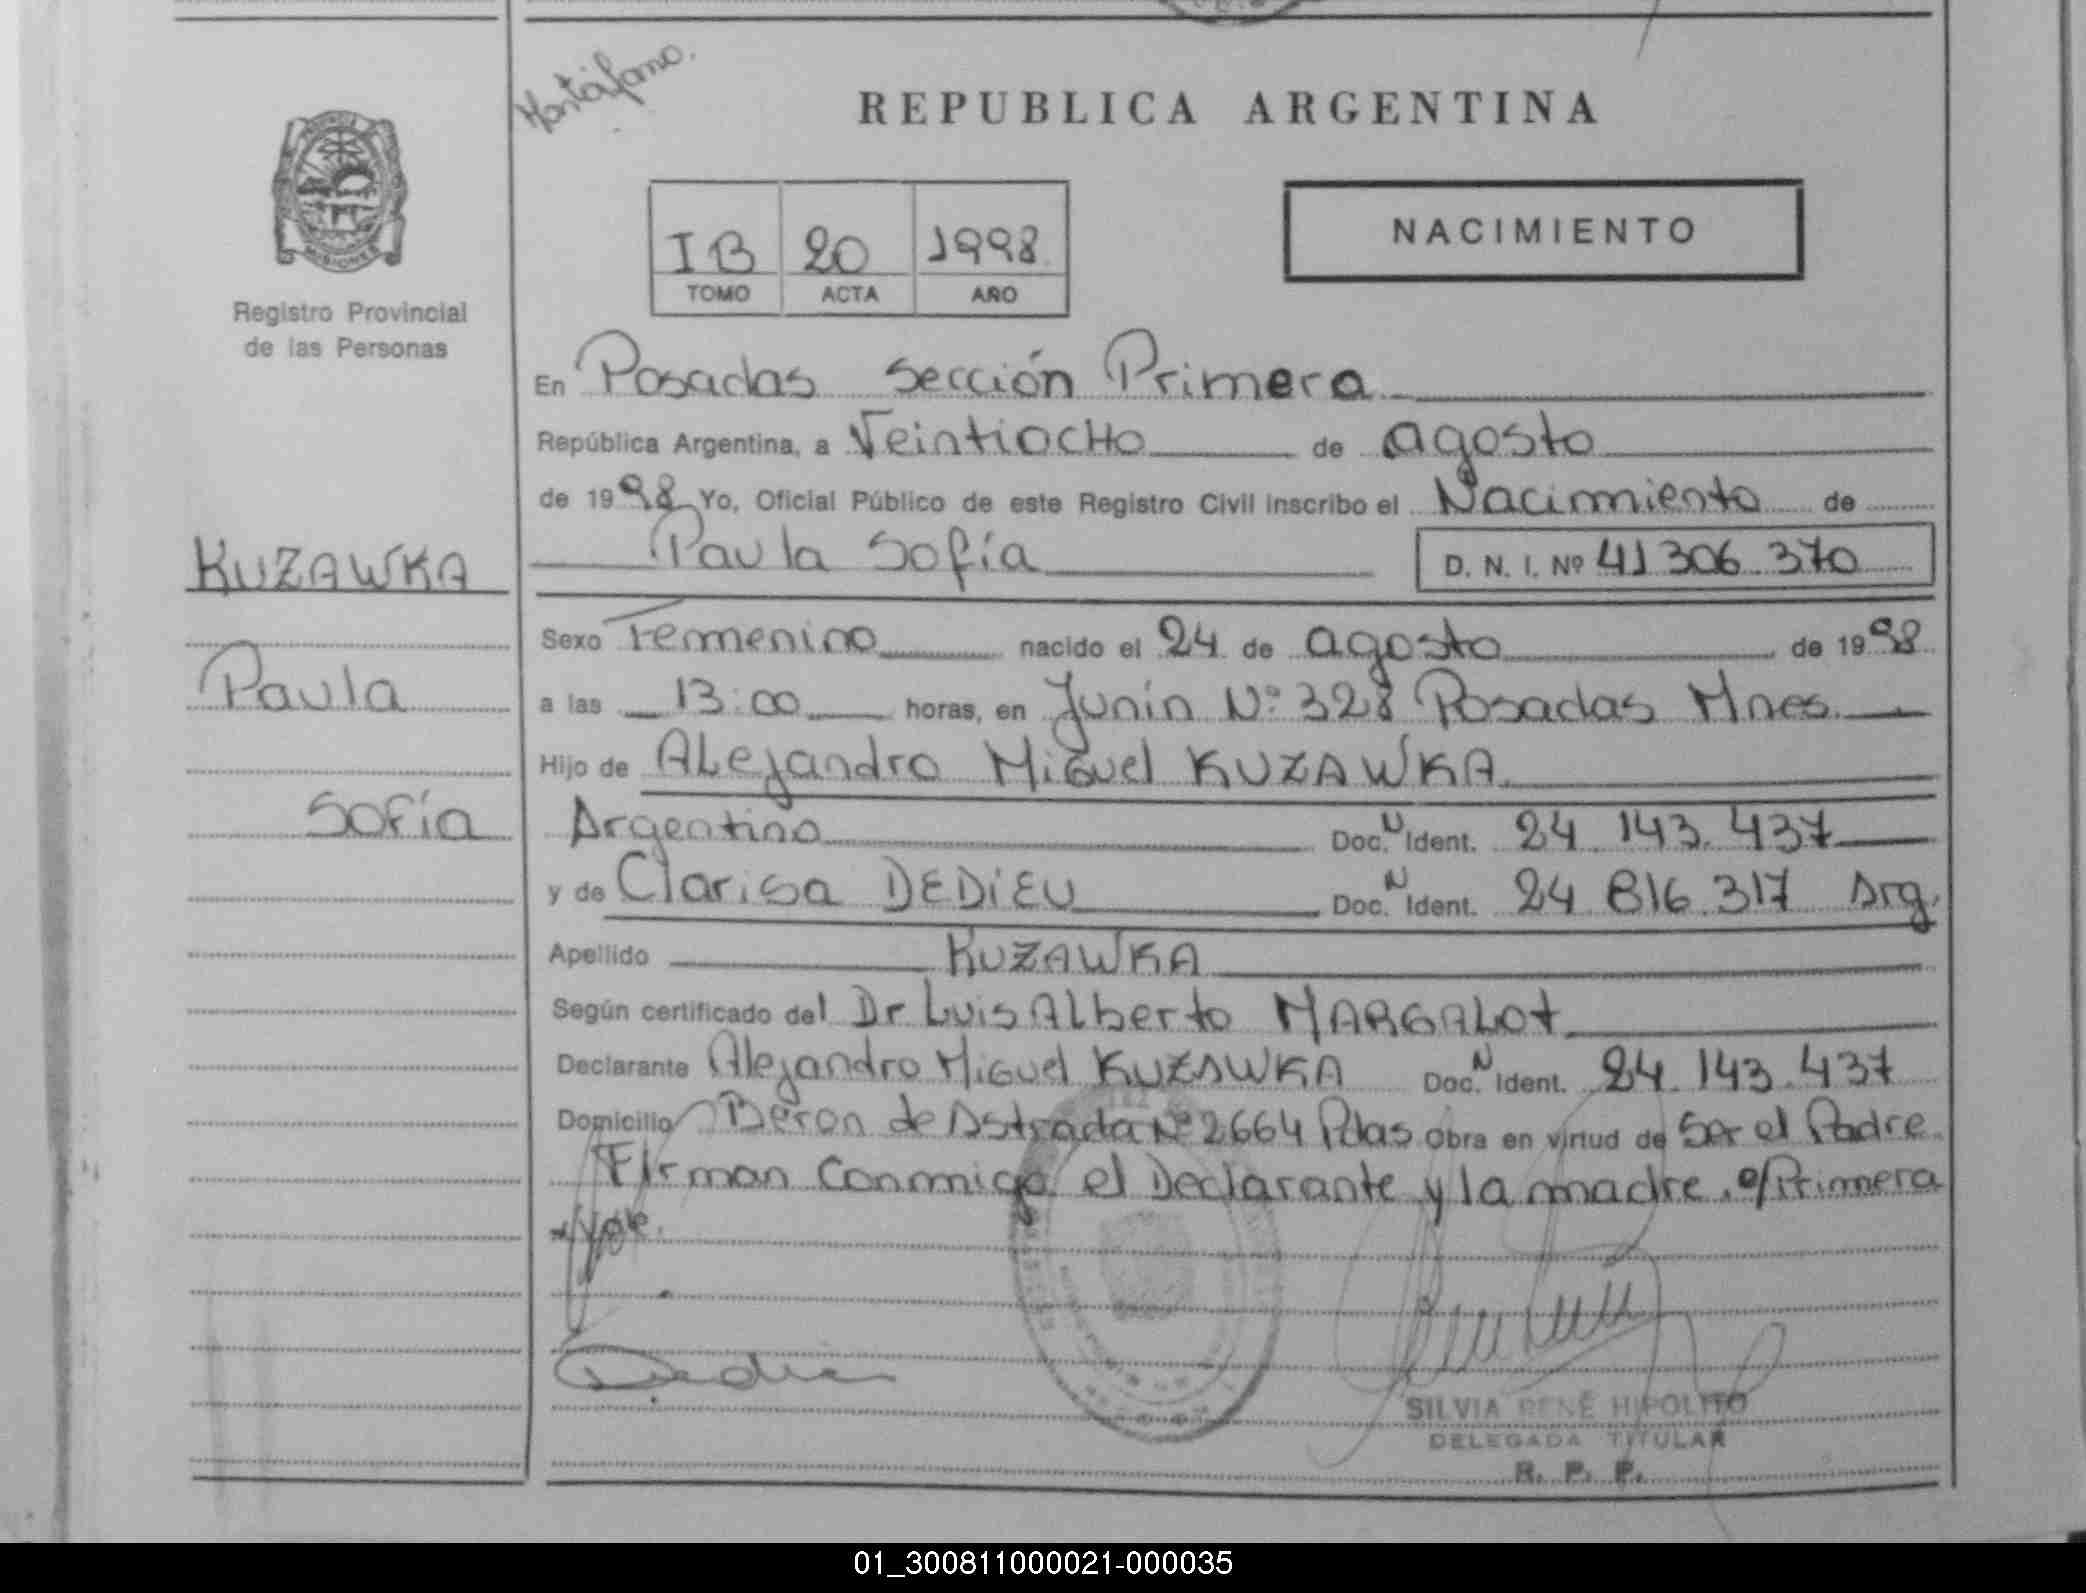 REPUBLICA ARGENTINA
MISIONES
Registro Provincial
de las Personas
IB 20 1998
TOMO ACTA AÑO
NACIMIENTO
En Posadas Sección Primera
República Argentina, a Veintiocho de agosto
de 1998 Yo, Oficial Público de este Registro Civil inscribo el Nacimiento de
Paula Sofía D. N. I. Nº 41 306 370
KUZAWKA
Paula
Sofía
Sexo Femenino nacido el 24 de agosto de 1998
a las 13:00 horas, en Junín Nº 328 Posadas Mnes.
Hijo de Alejandro Miguel KUZAWKA
Argentino Doc. N Ident. 24.143.437
y de Clarisa DEDIEU Doc. N Ident. 24 816.317 Arg.
Apellido KUZAWKA
Según certificado del Dr Luis Alberto MARGALOT
Declarante Alejandro Miguel KUZAWKA Doc. N Ident. 24.143.437
Domicilio Beron de Astrada Nº 2664 Pdas obra en virtud de Ser el Padre
Firman conmigo el Declarante y la madre. e/Primera
Vale.
SILVIA RENÉ HIPOLITO
DELEGADA TITULAR
R. P. P.
01_300811000021-000035